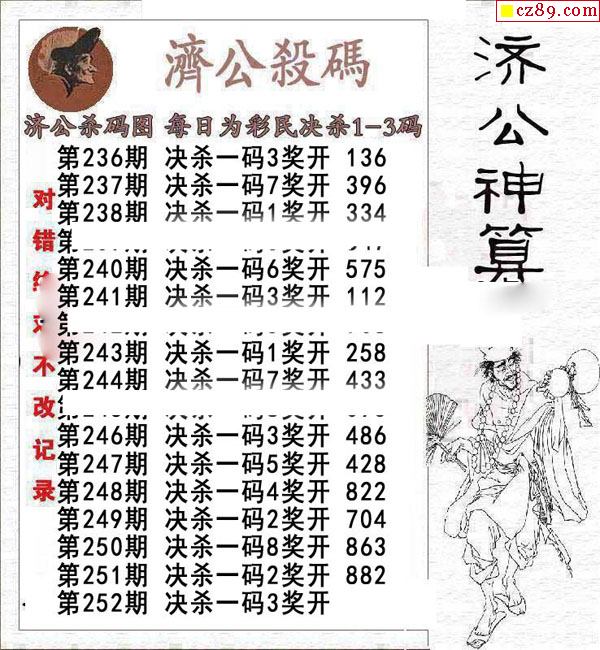 cz89.com
濟公殺碼
济公杀码图 每日为彩民决杀1-3码
第236期 决杀一码3奖开 136
第237期 决杀一码7奖开 396
第238期 决杀一码1奖开 334
第240期 决杀一码6奖开 575
第241期 决杀一码3奖开 112
第243期 决杀一码1奖开 258
第244期 决杀一码7奖开 433
第246期 决杀一码3奖开 486
第247期 决杀一码5奖开 428
第248期 决杀一码4奖开 822
第249期 决杀一码2奖开 704
第250期 决杀一码8奖开 863
第251期 决杀一码2奖开 882
第252期 决杀一码3奖开
对错绝对不改记录
济公神算